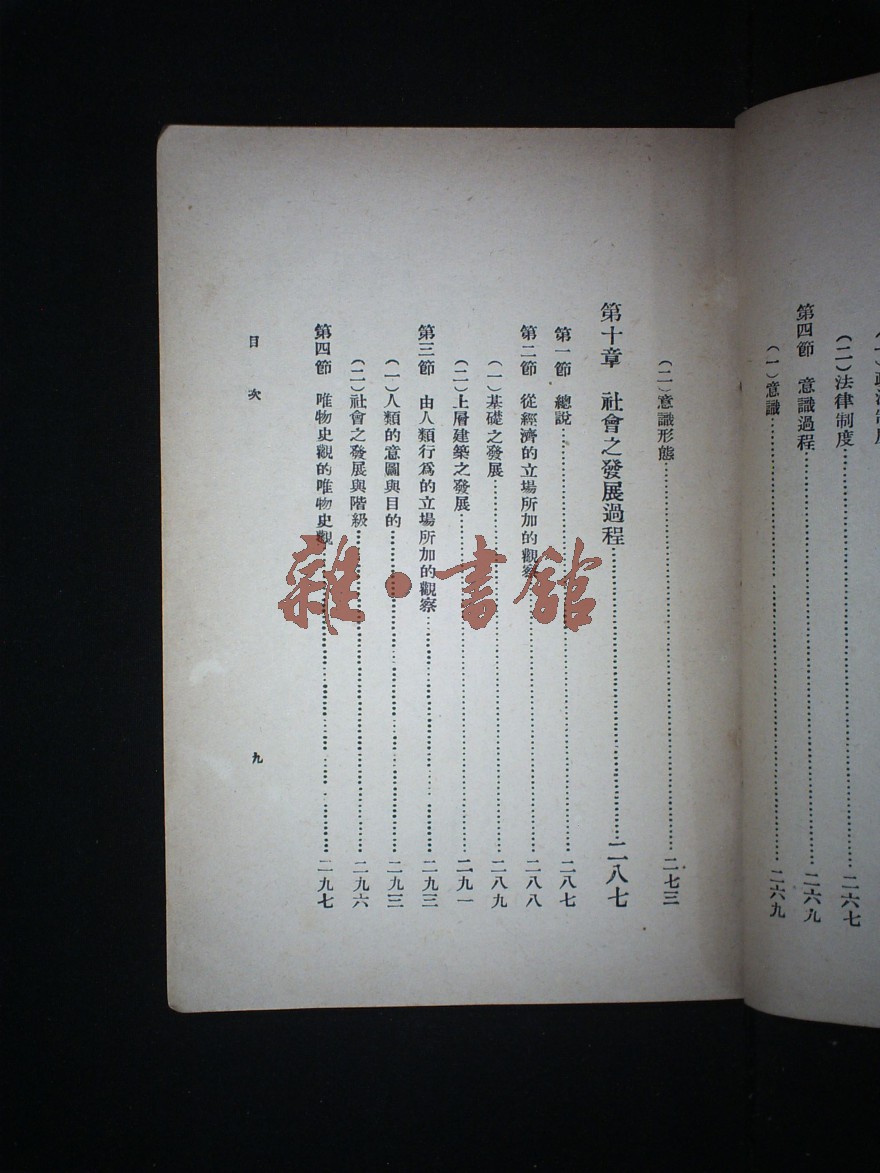 (二)法律制度……二六七
第四節 意識過程……二六九
(一)意識……二六九
(二)意識形態……二七三
第十章 社會之發展過程……二八七
第一節 總說……二八七
第二節 從經濟的立場所加的觀察……二八八
(一)基礎之發展……二八九
(二)上層建築之發展……二九一
第三節 由人類行爲的立場所加的觀察……二九三
(一)人類的意圖與目的……二九三
(二)社會之發展與階級……二九六
第四節 唯物史觀的唯物史觀……二九七
目次
九
雜·書館